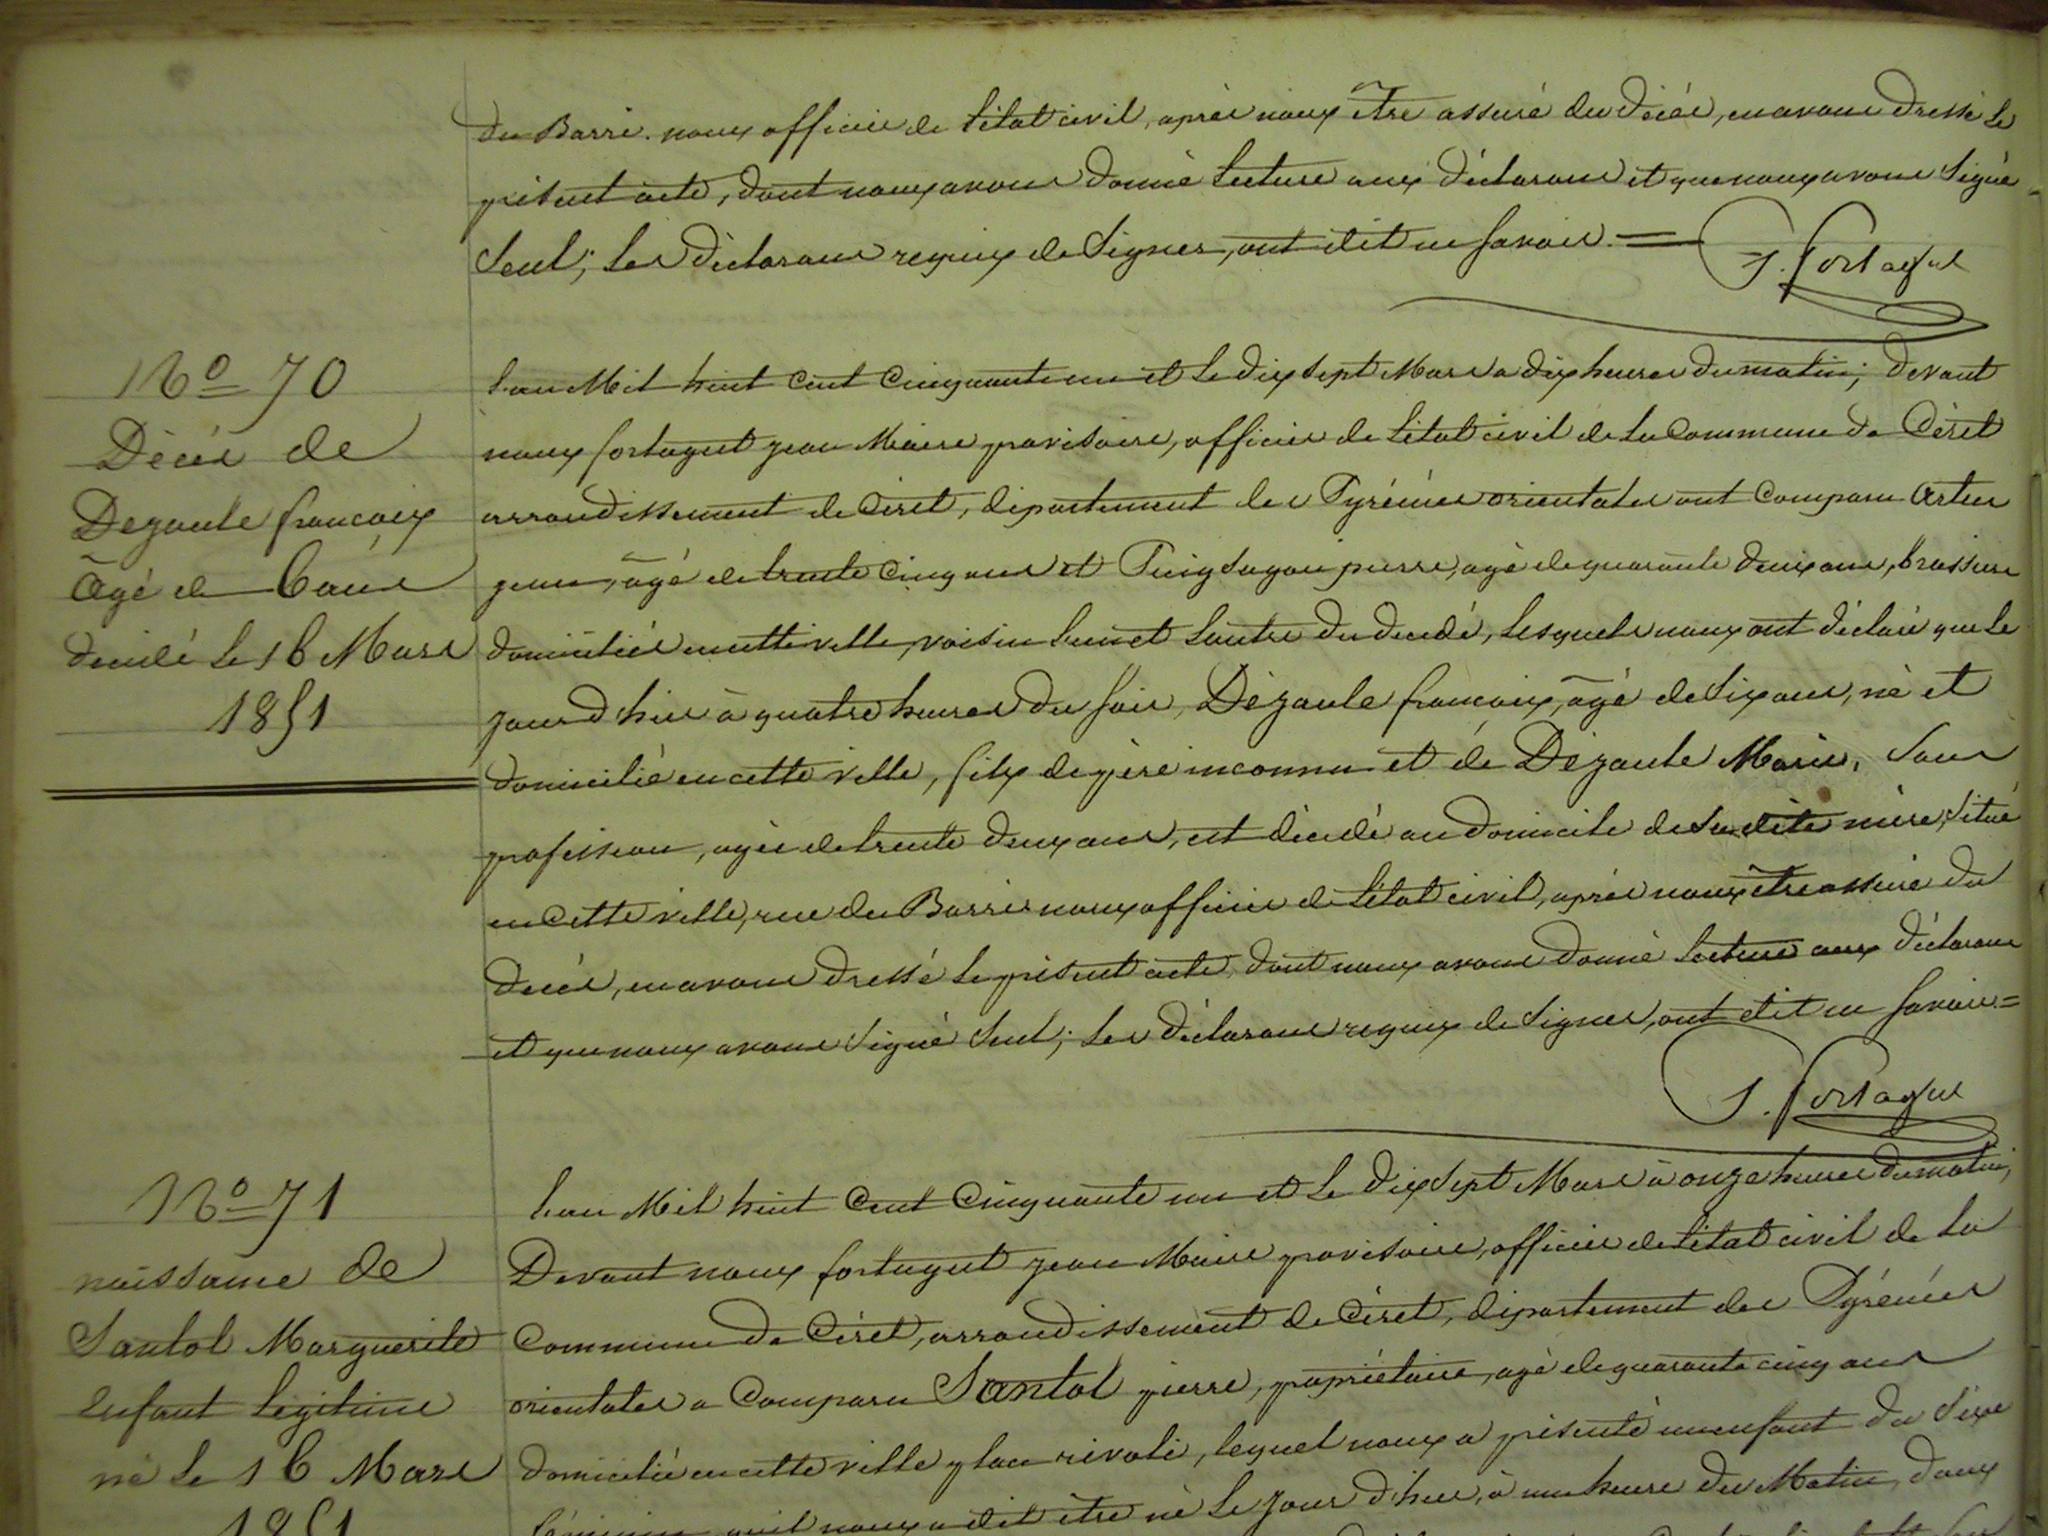 du Barri. nous officier de l'état civil, après nous être assuré du décés, en avons dressé le
présent acte, dont nous avons donné lecture aux déclarans et que nous avons signé
seul; les déclarans requis de signer, ont dit ne savoir. =
J. Fortaget
N° 70
Décés de
Dezaule francois
âgé de 6 ans
decédé le 16 Mars
1851
L'an Mil huit cent cinquante un et le dix sept Mars a dix heures du matin; devant
nous fortaguet jean Maire provisoire, officier de l'état civil de la commune de Céret
arrondissement de Céret, département des Pyrénées orientales ont comparu
âgé de trente cinq ans et pierre, agé de quarante deux ans, brassiers
domiciliés en cette ville, voisin l'un et l'autre du decedé, lesquels nous ont déclaré que le
jour d'hier à quatre heures du soir, Dézaule francois, âgé de six ans, né et
domicilié en cette ville, fils de père inconnu et de Dézaule Marie, sans
profession, agée de trente deux ans, est décedé au domicile de sa dite mère, situé
en cette ville, rue du Barri nous officier de l'état civil, après nous être assuré du
décés, en avons dressé le présent acte, dont nous avons donné lecture aux déclarans
et que nous avons signé seul; les déclarans requis de signer, ont dit ne savoir. =
J. Fortaget
N° 71
naissance de
Santol Marguerite
enfant légitime
né le 16 Mars
1851
L'an Mil huit cent cinquante un et le dix sept Mars à onze heures du matin,
Devant nous fortaguet jean Maire provisoire, officier de l'état civil de la
commune de Céret, arrondissement de Céret, département des Pyrénées
orientales a comparu Santol pierre, propriétaire, agé de quarante cinq ans
domicilié en cette ville place rivoli, lequel nous a présenté un enfant du sexe
féminin qu'il nous a dit être né le jour d'hier, à une heure du Matin, dans